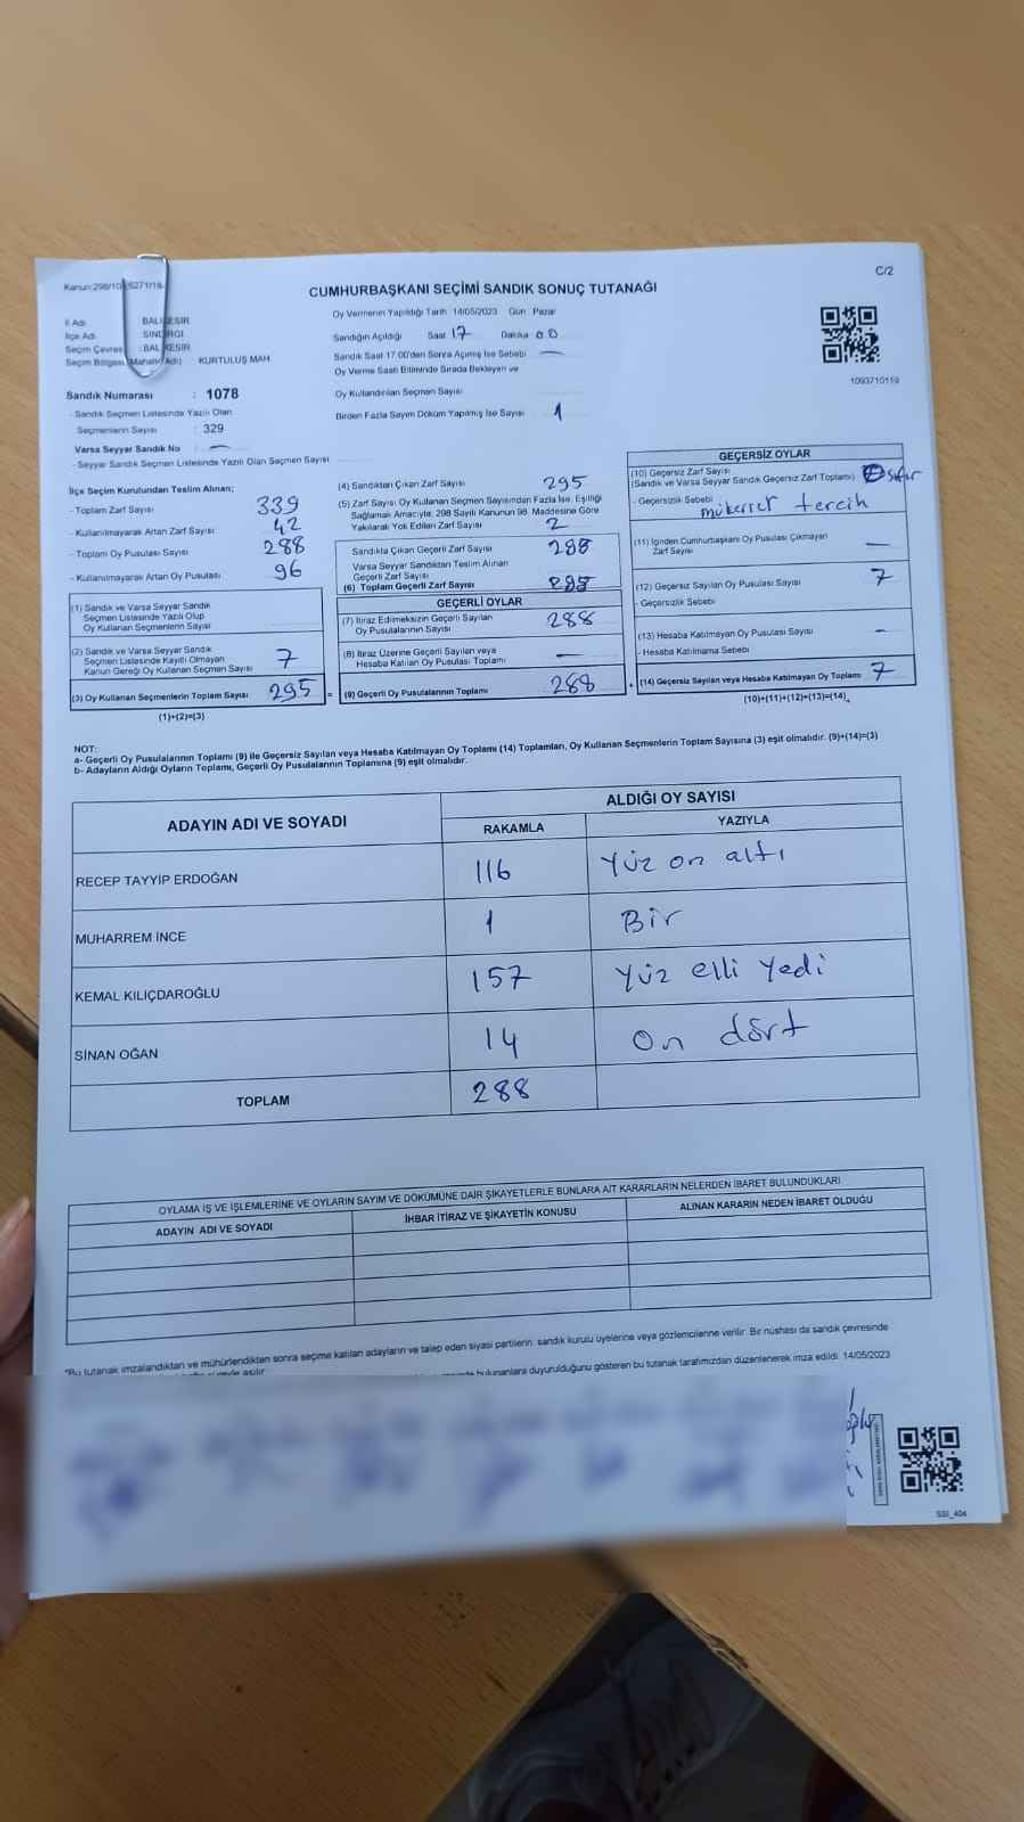 Kanun:298/10
C/2
CUMHURBAŞKANI SEÇİMİ SANDIK SONUÇ TUTANAĞI
İl Adı : BALIKESİR
İlçe Adı : SINDIRGI
Seçim Çevresi : BALIKESİR
Seçim Bölgesi (Mahalle Adı) : KURTULUŞ MAH.
Sandık Numarası : 1078
- Sandık Seçmen Listesinde Yazılı Olan
Seçmenlerin Sayısı : 329
Varsa Seyyar Sandık No : —
- Seyyar Sandık Seçmen Listesinde Yazılı Olan Seçmen Sayısı
Oy Vermenin Yapıldığı Tarih 14/05/2023 Gün Pazar
Sandığın Açıldığı Saat 17 Dakika 00
Sandık Saat 17.00'den Sonra Açılmış İse Sebebi —
Oy Verme Saati Bitiminde Sırada Bekleyen ve
Oy Kullandırılan Seçmen Sayısı
Birden Fazla Sayım Döküm Yapılmış İse Sayısı 1
1093710119
İlçe Seçim Kurulundan Teslim Alınan;
- Toplam Zarf Sayısı 339
- Kullanılmayarak Artan Zarf Sayısı 42
- Toplam Oy Pusulası Sayısı 288
- Kullanılmayarak Artan Oy Pusulası 96
(1) Sandık ve Varsa Seyyar Sandık
Seçmen Listesinde Yazılı Olup
Oy Kullanan Seçmenlerin Sayısı
(2) Sandık ve Varsa Seyyar Sandık
Seçmen Listesinde Kayıtlı Olmayan
Kanun Gereği Oy Kullanan Seçmen Sayısı 7
(3) Oy Kullanan Seçmenlerin Toplam Sayısı 295 =
(1)+(2)=(3)
(4) Sandıktan Çıkan Zarf Sayısı 295
(5) Zarf Sayısı Oy Kullanan Seçmen Sayısından Fazla İse, Eşitliği
Sağlamak Amacıyla, 298 Sayılı Kanunun 98. Maddesine Göre
Yakılarak Yok Edilen Zarf Sayısı 2
Sandıkta Çıkan Geçerli Zarf Sayısı 288
Varsa Seyyar Sandıktan Teslim Alınan
Geçerli Zarf Sayısı
(6) Toplam Geçerli Zarf Sayısı
GEÇERLİ OYLAR
(7) İtiraz Edilmeksizin Geçerli Sayılan
Oy Pusulalarının Sayısı 288
(8) İtiraz Üzerine Geçerli Sayılan veya
Hesaba Katılan Oy Pusulası Toplamı —
(9) Geçerli Oy Pusulalarının Toplamı 288 +
GEÇERSİZ OYLAR
(10) Geçersiz Zarf Sayısı
(Sandık ve Varsa Seyyar Sandık Geçersiz Zarf Toplamı) sıfır
- Geçersizlik Sebebi
mükerrer tercih
(11) İçinden Cumhurbaşkanı Oy Pusulası Çıkmayan
Zarf Sayısı —
(12) Geçersiz Sayılan Oy Pusulası Sayısı 7
- Geçersizlik Sebebi
(13) Hesaba Katılmayan Oy Pusulası Sayısı -
- Hesaba Katılmama Sebebi
(14) Geçersiz Sayılan veya Hesaba Katılmayan Oy Toplamı 7
(10)+(11)+(12)+(13)=(14)
NOT:
a- Geçerli Oy Pusulalarının Toplamı (9) ile Geçersiz Sayılan veya Hesaba Katılmayan Oy Toplamı (14) Toplamları, Oy Kullanan Seçmenlerin Toplam Sayısına (3) eşit olmalıdır. (9)+(14)=(3)
b- Adayların Aldığı Oyların Toplamı, Geçerli Oy Pusulalarının Toplamına (9) eşit olmalıdır.
ADAYIN ADI VE SOYADI
ALDIĞI OY SAYISI
RAKAMLA YAZIYLA
RECEP TAYYİP ERDOĞAN 116 Yüz on altı
MUHARREM İNCE 1 Bir
KEMAL KILIÇDAROĞLU 157 Yüz elli yedi
SİNAN OĞAN 14 On dört
TOPLAM 288
OYLAMA İŞ VE İŞLEMLERİNE VE OYLARIN SAYIM VE DÖKÜMÜNE DAİR ŞİKAYETLERLE BUNLARA AİT KARARLARIN NELERDEN İBARET BULUNDUKLARI
ADAYIN ADI VE SOYADI İHBAR İTİRAZ VE ŞİKAYETİN KONUSU ALINAN KARARIN NEDEN İBARET OLDUĞU
*Bu tutanak imzalandıktan ve mühürlendikten sonra seçime katılan adayların ve talep eden siyasi partilerin, sandık kurulu üyelerine veya gözlemcilerine verilir. Bir nüshası da sandık çevresinde
bulunanlara duyurulduğunu gösteren bu tutanak tarafımızdan düzenlenerek imza edildi. 14/05/2023